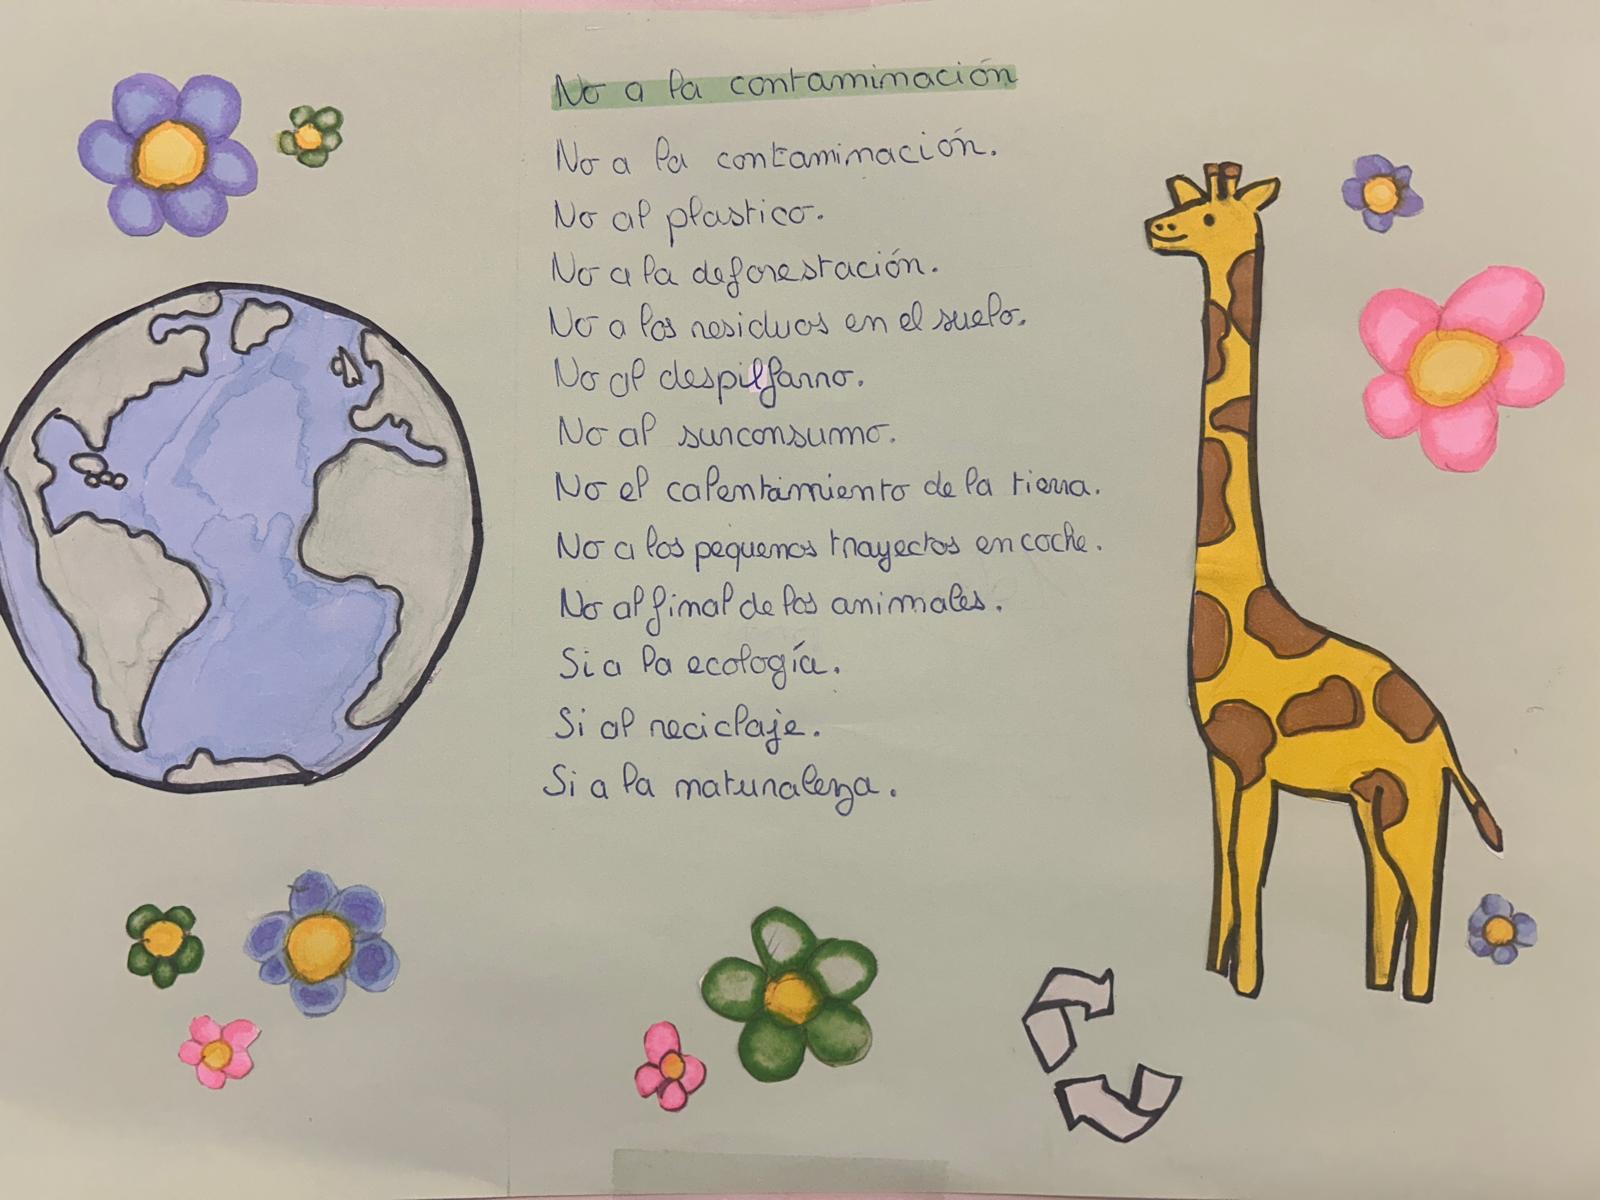 No a la contaminación
No a la contaminación.
No al plastico.
No a la deforestación.
No a los residuos en el suelo.
No al despilfarro.
No al surconsumo.
No el calentamiento de la tierra.
No a los pequenos trayectos en coche.
No al final de los animales.
Si a la ecología.
Si al reciclaje.
Si a la naturaleza.